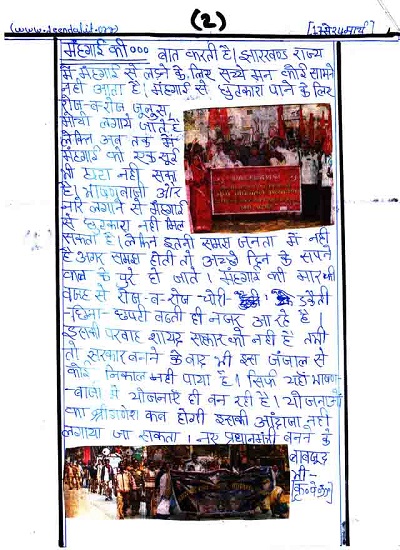 (www.teendalit.org) (2)
मंहगाई की००० बात करती है। झारखण्ड राज्य
में मंहगाई से लड़ने के लिए सच्चे मन कोई सामने
नहीं आता है। मंहगाई से छुतकारा पाने के लिए
रोज-ब-रोज जुलुस,
मोर्चा लगाये जाते हैं
लेकिन अब तक में
मंहगाई को एक सुई
भी हटा नहीं सका
है। भाषणबाजी और
नारे लगाने से मंहगाई
से छुतकारा नहीं मिल
सकता है। लेकिन इतनी समझ जनता में नहीं
है अगर समझ होती तो अच्छे दिन के सपने
कब के पुरे हो जाते। मंहगाई की मार की
वजह से रोज-ब-रोज चोरी डकैती
-छिना-छपटी बढती ही नजर आ रहे हैं।
इसकी परवाह शायद सरकार को नहीं है तभी
तो सरकार बनने के बाद भी इस जंजाल से
कोई निकाल नहीं पाया है। सिर्फ यहाँ भाषण
-बाजी में योजनाऐं ही बन रही है। योजनाओं
का श्रीगणेश कब होगी इसकी आंदाजा नहीं
लगाया जा सकता। नए प्रधानमंत्री बनने के
बावजूद
भी-